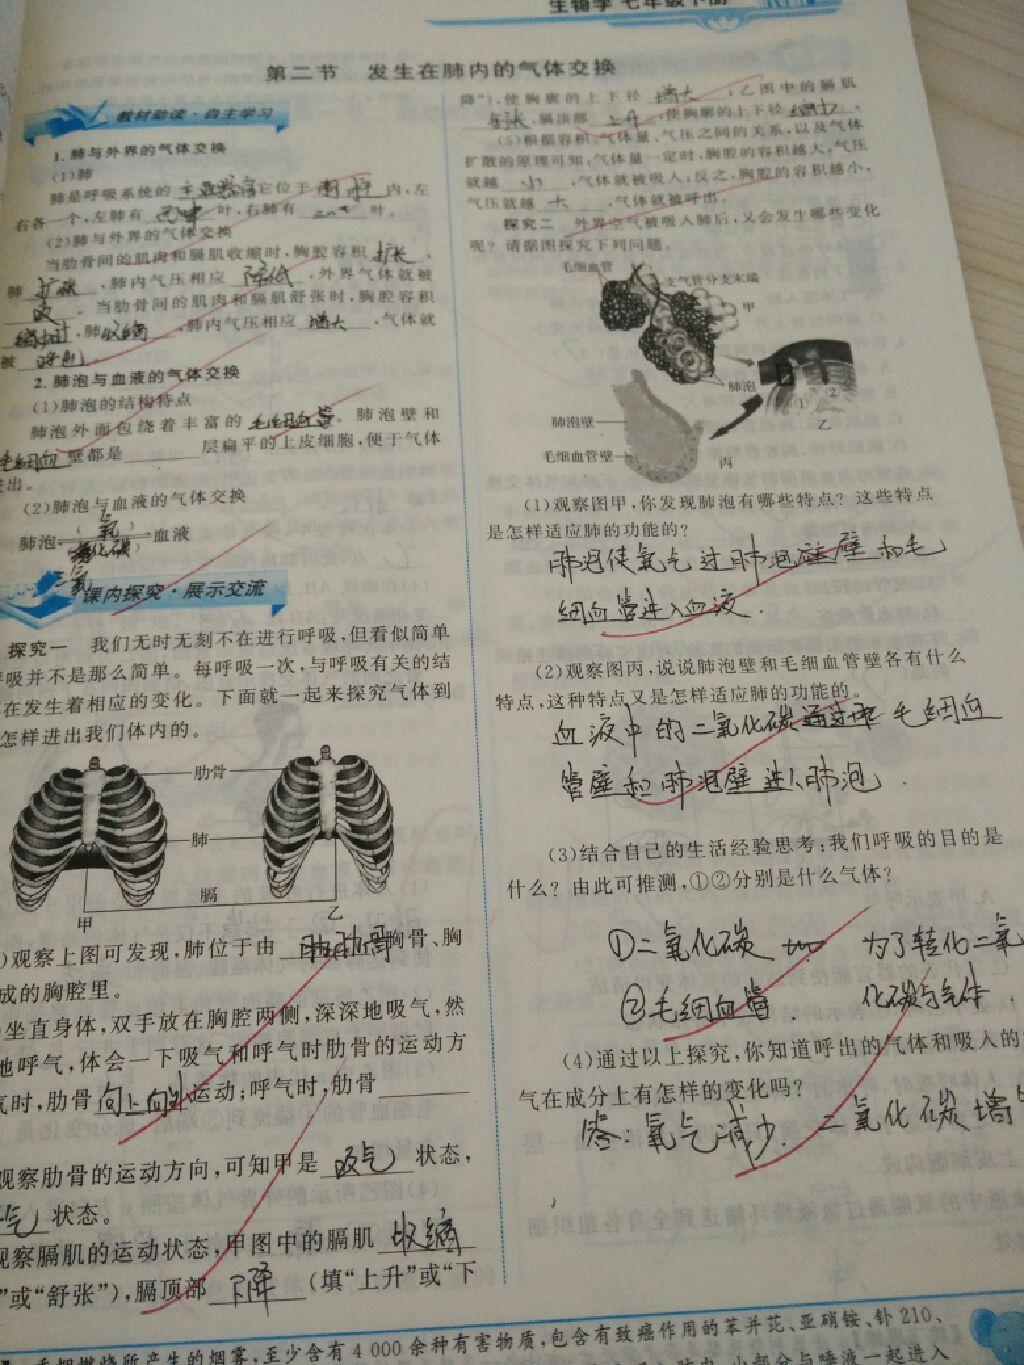 生物学 七年级下册
第二节 发生在肺内的气体交换
教材助读·自主学习
1. 肺与外界的气体交换
(1)肺
肺是呼吸系统的 主要器官 它位于 胸腔 内,左
右各一个,左肺有 叶,右肺有 叶。
(2)肺与外界的气体交换
当肋骨间的肌肉和膈肌收缩时,胸腔容积 扩张 ,
肺 扩张 ,肺内气压相应 降低 ,外界气体就被
。当肋骨间的肌肉和膈肌舒张时,胸腔容积
,肺 收缩 ,肺内气压相应 增大 ,气体就
被
2. 肺泡与血液的气体交换
(1)肺泡的结构特点
肺泡外面包绕着丰富的 毛细血管 。肺泡壁和
毛细血 壁都是 层扁平的上皮细胞,便于气体
进出。
(2)肺泡与血液的气体交换
氧
肺泡 血液
课内探究·展示交流
探究一 我们无时无刻不在进行呼吸,但看似简单
呼吸并不是那么简单。每呼吸一次,与呼吸有关的结
在发生着相应的变化。下面就一起来探究气体到
怎样进出我们体内的。
肋骨
肺
膈
甲
乙
)观察上图可发现,肺位于由 胸骨、胸
成的胸腔里。
坐直身体,双手放在胸腔两侧,深深地吸气,然
地呼气,体会一下吸气和呼气时肋骨的运动方
气时,肋骨 向上向外 运动;呼气时,肋骨
观察肋骨的运动方向,可知甲是 吸气 状态,
气 状态。
观察膈肌的运动状态,甲图中的膈肌 收缩
”或“舒张”),膈顶部 下降 (填“上升”或“下
降”),使胸廓的上下径 增大 ,乙图中的膈肌
舒张 ,膈顶部 上升 ,使胸廓的上下径 缩小 。
(5)根据容积、气体量、气压之间的关系,以及气体
扩散的原理可知,气体量一定时,胸腔的容积越大,气压
就越 小 ,气体就被吸入;反之,胸腔的容积越小,
气压就越 大 ,气体就被呼出。
探究二 外界空气被吸入肺后,又会发生哪些变化
呢?请据图探究下列问题。
毛细血管
支气管分支末端
甲
肺泡
① ②
乙
肺泡壁
毛细血管壁
丙
(1)观察图甲,你发现肺泡有哪些特点?这些特点
是怎样适应肺的功能的?
肺泡使氧气 过肺泡壁和毛
细血管进入血液.
(2)观察图丙,说说肺泡壁和毛细血管壁各有什么
特点,这种特点又是怎样适应肺的功能的。
血液中的二氧化碳通过 毛细血
管壁和肺泡壁进入肺泡.
(3)结合自己的生活经验思考:我们呼吸的目的是
什么?由此可推测,①②分别是什么气体?
①二氧化碳 为了转化二氧
②毛细血管. 化碳与气体.
(4)通过以上探究,你知道呼出的气体和吸入的
气在成分上有怎样的变化吗?
答:氧气减少. 二氧化碳增
香烟燃烧所产生的烟雾,至少含有4 000余种有害物质,包含有致癌作用的苯并芘、亚硝铵、钋210、
小部分与唾液一起进入